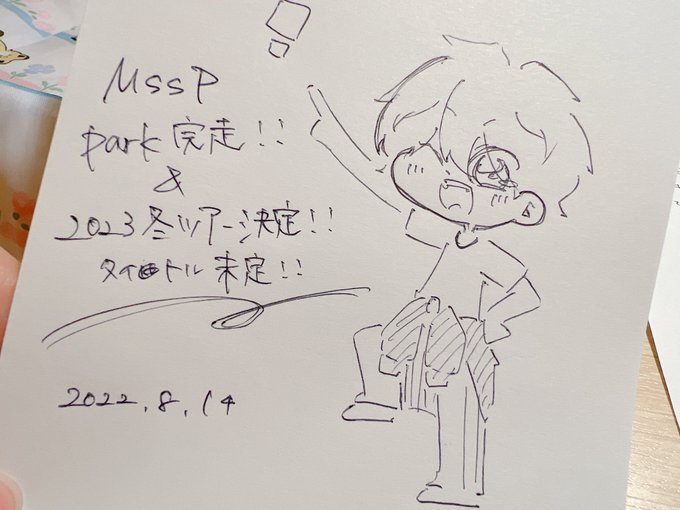 MSSP
park 完走!!
&
2023冬ツアー決定!!
タイトル未定!!
2022.8.14